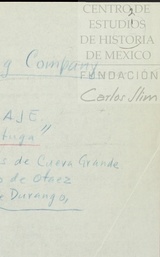 CENTRO DE
ESTUDIOS
DE HISTORIA
DE MÉXICO
g Company
FUNDACIÓN
Carlos Slim
AJE
tuga"
s de Cueva Grande
o de Otaez
e Durango,